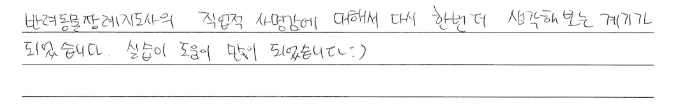 반려동물장례지도사의 직업적 사명감에 대해서 다시 한번 더 생각해보는 계기가
되었습니다. 실습이 도움이 많이 되었습니다:)